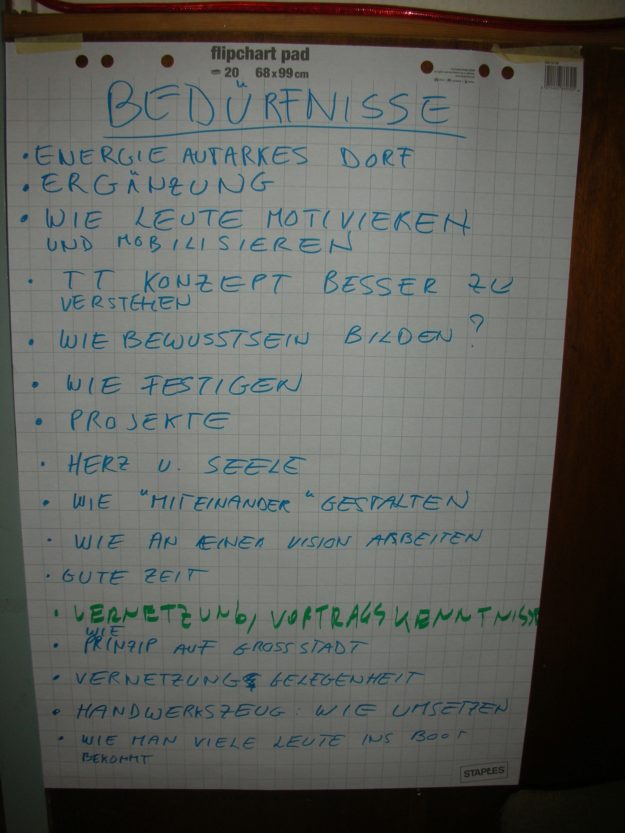 flipchart pad
20 68 x 99 cm
BEDÜRFNISSE
• ENERGIE AUTARKES DORF
• ERGÄNZUNG
• WIE LEUTE MOTIVIEREN
UND MOBILISIEREN
• TT KONZEPT BESSER ZU
VERSTEHEN
• WIE BEWUSSTSEIN BILDEN ?
• WIE FESTIGEN
• PROJEKTE
• HERZ U. SEELE
• WIE "MITEINANDER" GESTALTEN
• WIE AN EINER VISION ARBEITEN
• GUTE ZEIT
• VERNETZUNG, VORTRAGSKENNTNISSE
WIE
• PRINZIP AUF GROSSSTADT
• VERNETZUNGSGELEGENHEIT
• HANDWERKSZEUG: WIE UMSETZEN
• WIE MAN VIELE LEUTE INS BOOT
BEKOMMT
STAPLES